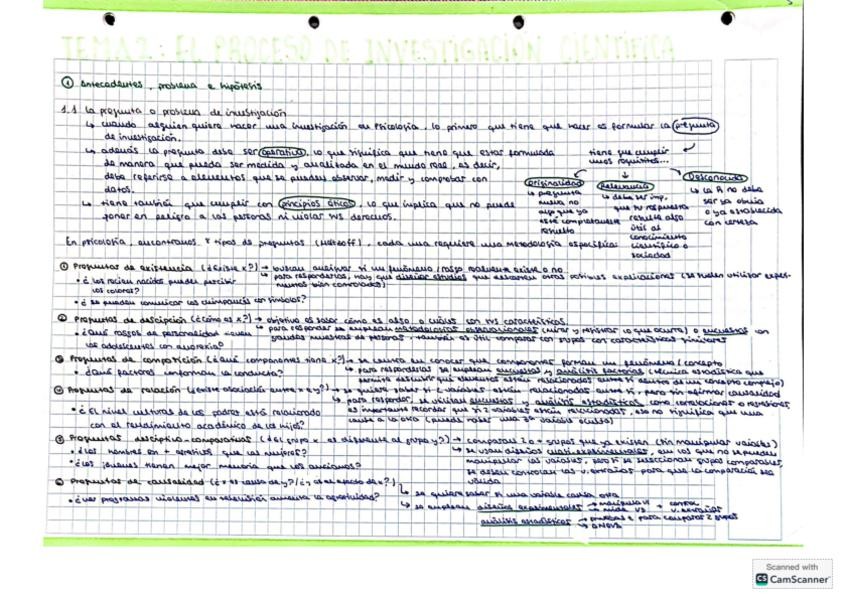 TEMA 2: EL PROCESO DE INVESTIGACIÓN CIENTÍFICA
① Antecedentes, problema e hipótesis
1.1 La pregunta o problema de investigación
↳ cuando alguien quiere hacer una investigación en Psicología, lo primero que tiene que hacer es formular la pregunta
de investigación.
↳ además la pregunta debe ser operativa, lo que significa que tiene que estar formulada
de manera que pueda ser medida y analizada en el mundo real, es decir,
debe referirse a elementos que se puedan observar, medir y comprobar con
datos.
↳ tiene también que cumplir con principios éticos, lo que implica que no puede
poner en peligro a las personas ni violar sus derechos.
tiene que cumplir
unos requisitos...
Originalidad
↳ pregunta
nueva no
algo que ya
esté completamente
resuelto
Relevancia
↳ debe ser imp,
que su respuesta
resulte algo
útil al
conocimiento
científico o
sociedad
Desconocida
↳ la R no debe
ser ya obvia
o ya establecida
con certeza
En psicología, encontramos tipos de preguntas, cada una requiere una metodología específica
① Preguntas de existencia (¿Existe x?) → buscan averiguar si un fenómeno/rasgo realmente existe o no
↳ para responderlas, hay que diseñar estudios que descarten otras posibles explicaciones (se suelen utilizar experi-
mentos bien controlados)
• ¿Los recien nacidos pueden percibir
los colores?
• ¿Se pueden comunicar los chimpancés con símbolos?
Preguntas de descripción (¿Cómo es x?) → objetivo es saber cómo es algo, o cuáles son sus características
↳ para responder se emplean metodologías observacionales (mirar y registrar lo que ocurra) o encuestas con
grandes muestras de personas, también es útil comparar con grupos con características similares
• ¿Qué rasgos de personalidad tienen
los adolescentes con anorexia?
Preguntas de composición (¿Qué componentes tiene x?) → se centra en conocer que componentes forman un fenómeno/concepto
↳ para responderlas se emplean encuestas y análisis factorial (técnica estadística que
permite descubrir que elementos están relacionados entre sí dentro de un concepto complejo)
• ¿Qué factores conforman la conducta?
Preguntas de relación (¿Existe asociación entre x e y?) → se quiere saber si 2 variables están relacionadas entre sí, pero sin afirmar causalidad
↳ para responder, se utilizan encuestas y análisis estadísticos como correlaciones o regresiones,
es importante recordar que si 2 variables están relacionadas, eso no significa que una
cause a la otra (puede haber una 3ª variable oculta)
• ¿El nivel cultural de los padres está relacionado
con el rendimiento académico de los hijos?
Preguntas descriptivo-comparativas (¿el grupo x es diferente al grupo y?) → comparar 2 o + grupos que ya existen (sin manipular variables)
↳ se usan diseños cuasi-experimentales, en los que no se pueden
manipular las variables, pero sí se seleccionan grupos comparables,
se deben controlar las v. extrañas para que la comparación sea
válida
• ¿Los hombres son + que las mujeres?
• ¿Los jóvenes tienen mejor memoria que los ancianos?
Preguntas de causalidad (¿x es causa de y?/¿y es el efecto de x?)
↳ se quiere saber si una variable causa otra
↳ se emplean diseños experimentales → manipula VI
→ mide VD
+ control
v. extrañas
análisis estadísticos → pruebas t para comparar 2 grupos
→ ANOVA
• ¿Ver programas violentos en televisión aumenta la agresividad?
Scanned with
CS CamScanner